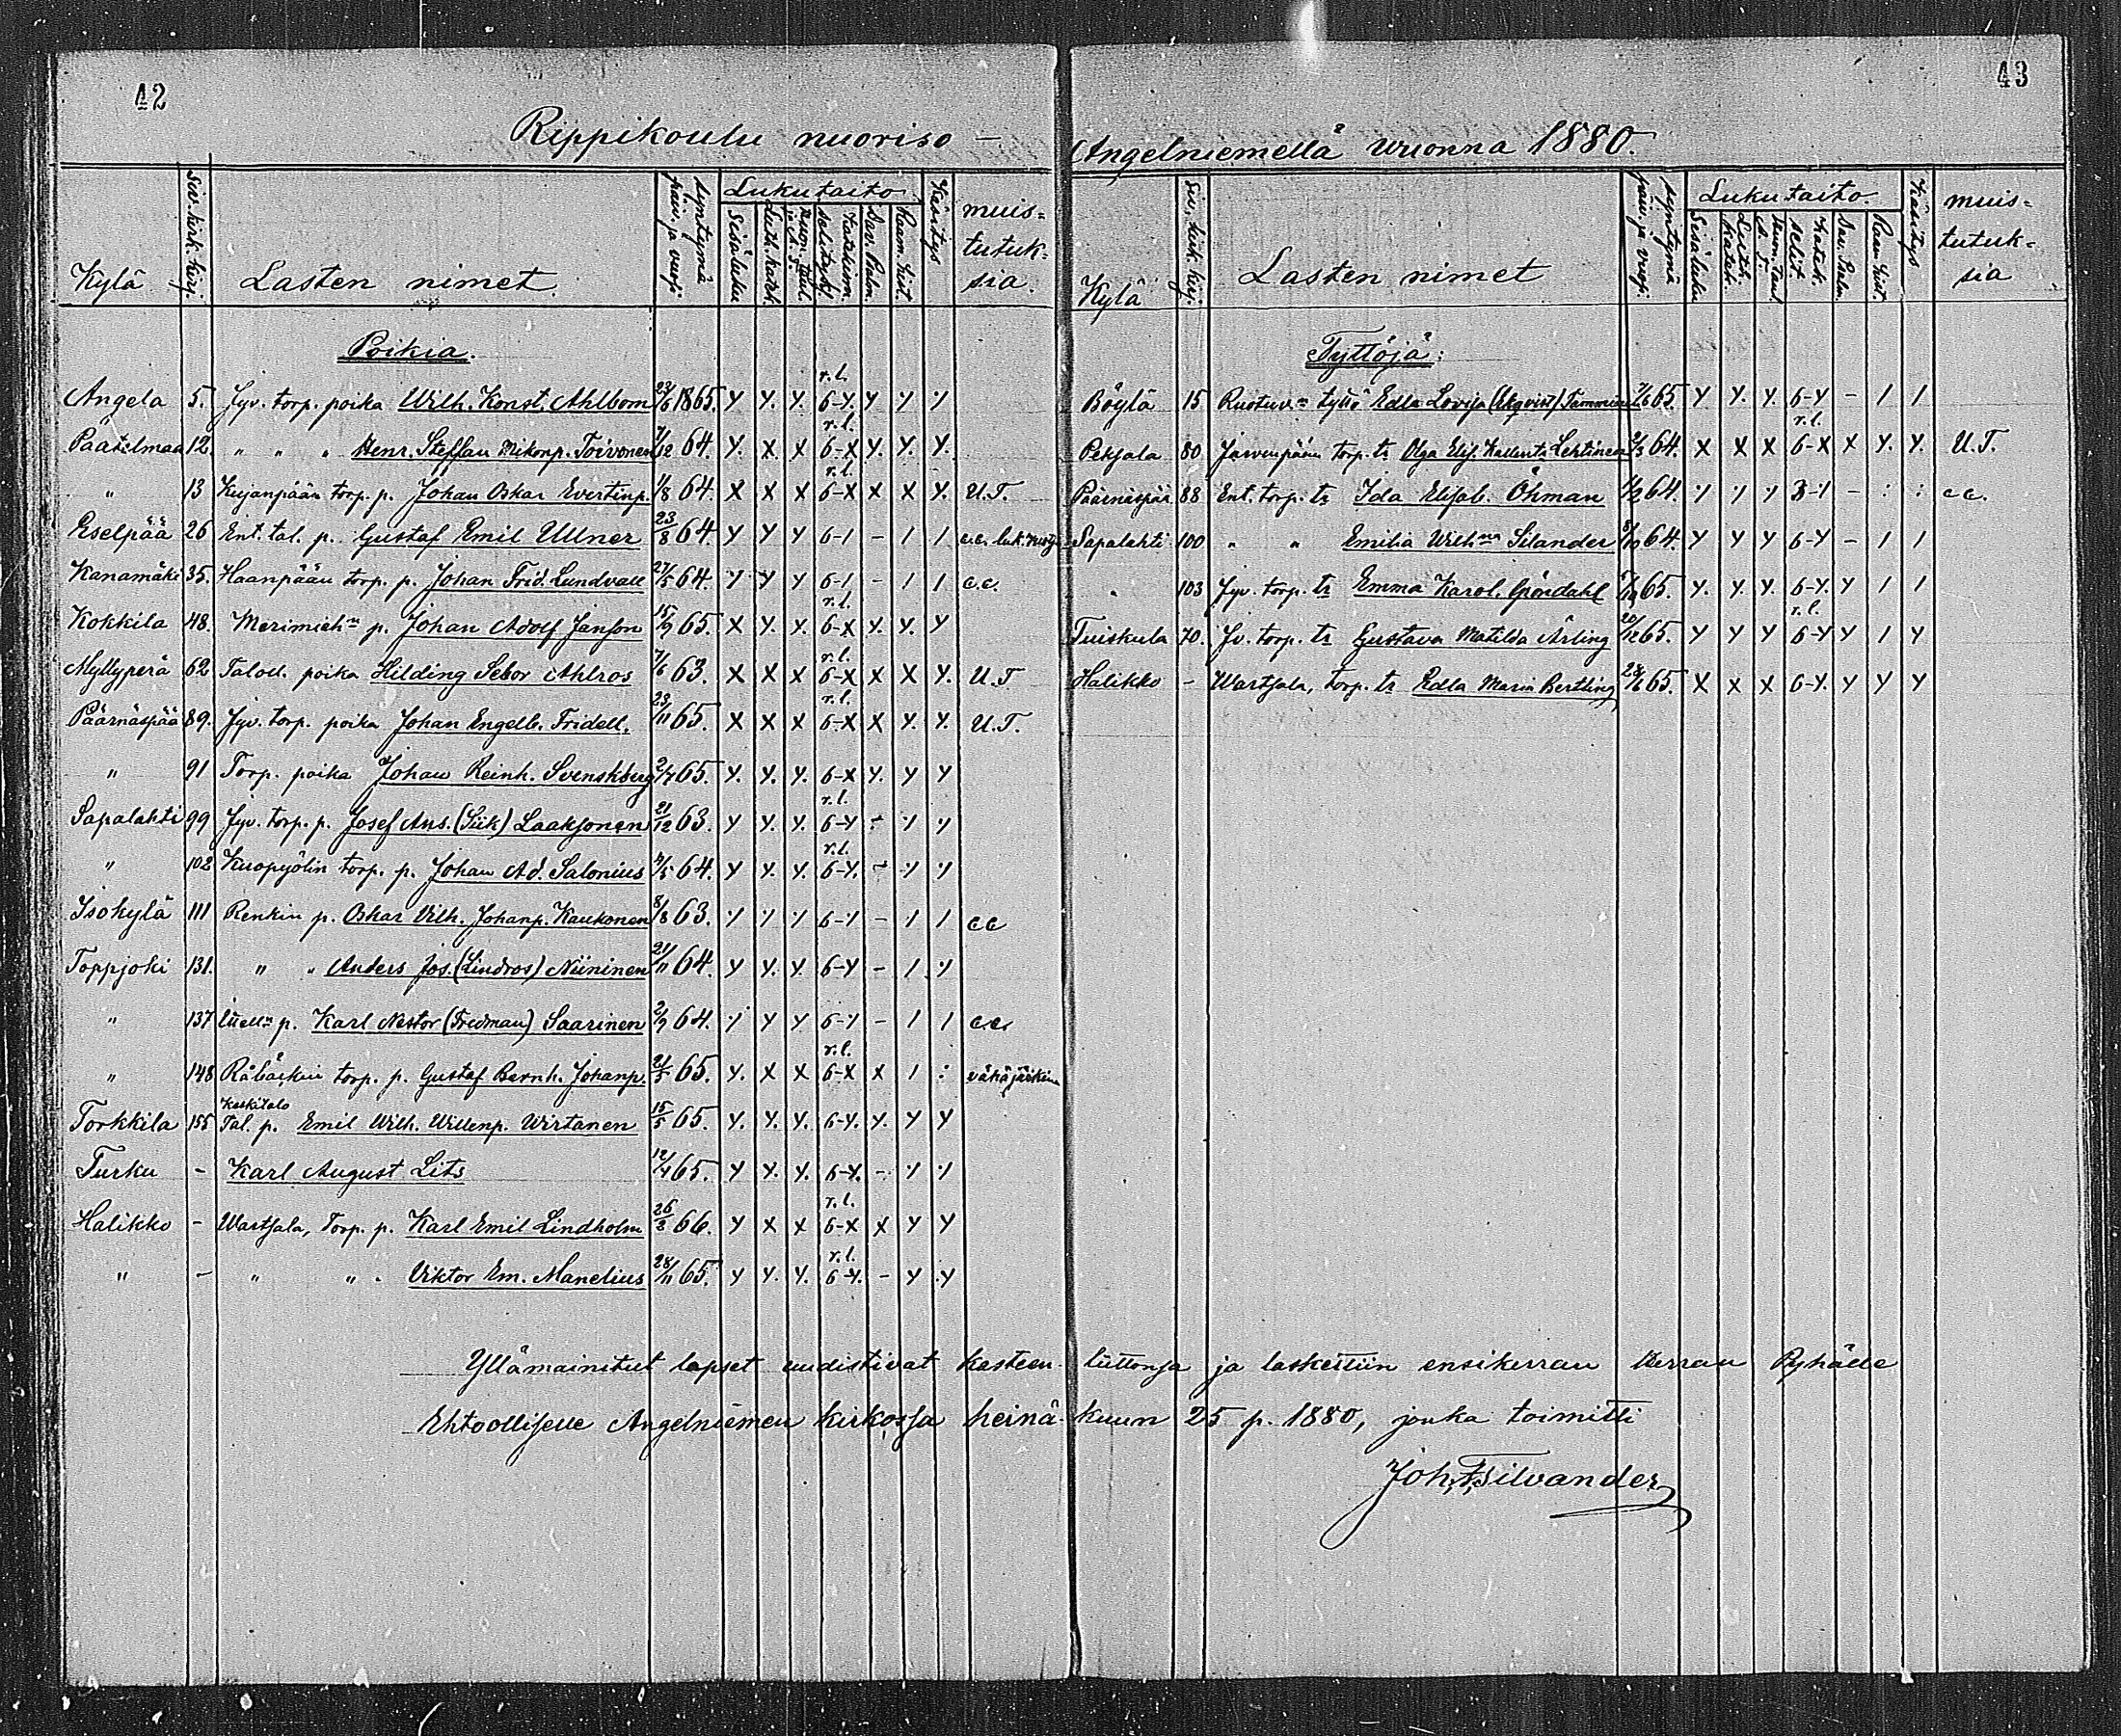 42
Rippikoulu nuoriso –
Kylä Siv. kirk. kirj. Lasten nimet. syntymä päiv. ja vuosi Lukutaito. Sisäluku Luth. katek. Käsitys muis=
tutuk=
sia.
Poikia.
r.l.
Angela 5. Jyv. torp. poika Wilh. Konst. Ahlbom 23/6 1865. y y. y. 6-y. y y y
r.l.
Päätilmaa 12. " " " Henr. Steffan Mikonp. Toivonen 7/12 64. y. x x 6-x y. y. y.
r.l.
" 13 Kujanpään torp. p. Johan Oskar Evertinp. 1/8 64. x x x 6-x x x y. U.T.
Eselpää 26 Ent. tal. p. Gustaf Emil Ullner 23/8 64. y y y 6-1 – 1 1 c.c.
Kanamäki 35. Haanpään torp. p. Johan Frid. Lundvall 27/5 64. y y y 6-1 – 1 1 c.c.
r.l.
Kokkila 48. Merimieh:n p. Johan Adolf Janson 15/9 65. x y. y. 6-x y. y. y
r.l.
Myllyperä 62 Taloll. poika Hilding Sebor Ahlros 7/6 63. x x x 6-x x x y. U.T
r.l.
Päärnäspää 89. Jyv. torp. poika Johan Engelb. Fridell. 23/11 65. x x x 6-x x y. y. U.T.
" 91 Torp. poika Johan Reinh. Svenskberg 2/7 65. y. y. y. 6-x y. y y
r.l.
Sapalahti 99 Jyv. torp. p. Josef Ans. (Siik) Laaksonen 21/12 63. y y. y. 6-y – y y
r.l.
" 102 Kuopyölin torp. p. Johan Ad. Salonius 4/5 64. y y. y. 6-y. – y y
Isokylä 111 Renkin p. Oskar Vilh. Johanp. Kaukonen 8/8 63. y y y 6-y – 1 1 cc
Toppjoki 131. " " Anders Jos. (Lindros) Niininen 21/11 64. y y. y. 6-y – 1 y
" 137 p. Karl Nestor (Fredman) Saarinen 2/9 64. y y y 6-y – 1 1 c.c.
r.l.
" 148 Råbackin torp. p. Gustaf Bernh. Johanp. 21/5 65. y. x x 6-x x 1 : vähäjärkin
Keskitalo
Torkkila 155 Tal. p. Emil Wilh. Willenp. Wirtanen 15/5 65. y. y. y. 6-y. y. y y
Turku – Karl August Lits 12/4 65. y y. y. 6-y. – y y
r.l.
Halikko – Wartsala, Torp. p. Karl Emil Lindholm 26/2 66. y x x 6-x x y y
r.l.
" – " " . Viktor Em. Manelius 28/11 65. y y. y. 6-y. – y y
43
Angelniemellä wuonna 1880.
Kylä Siv. kirk. kirj. Lasten nimet syntymä päiv. ja vuosi Lukutaito. Sisäluku Käsitys muis=
tutuk=
sia
Tyttöjä:
Böylä 15 Ruotuv:n tyttö Edla Lovisa (Ekqvist) Tamminen 7/6 65. y y. y. 6-y – 1 1
r.l.
Peksala 80 Järvenpään torp. tr Olga Elis. Kallentr Lehtinen 2/3 64. x x x 6-x x y. y. U.T.
Päärnäspää 88 Ent. torp. tr Ida Elisab. Öhman 64. y y y 3-1 – : : c.c.
Sapalahti 100 " " Emilia Wilh:na Silander 8/10 64. y y y 6-y – 1 1
" 103 Jyv. torp. tr Emma Karol. Gröndahl 65. y. y. y. 6-y. y 1 1
r.l.
Tuiskula 70. Jv. torp. tr Gustava Matilda Ärling 20/12 65. y y y 6-y y 1 y
Halikko – Wartsala, torp. tr Edla Maria Bertling 28/6 65. x x x 6-y. y y y
Yllämainitut lapset uudistivat kasteen liittonsa ja laskettiin ensikerran Herran Pyhälle
Ehtoolliselle Angelniemen kirkossa heinä kuun 25 p. 1880, jonka toimitti
Joh. F. Silvander